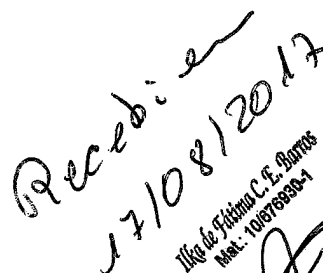 Recebi em
17/08/2017
Ilka de Fátima C. E. Barros
Mat.: 10/676930-1